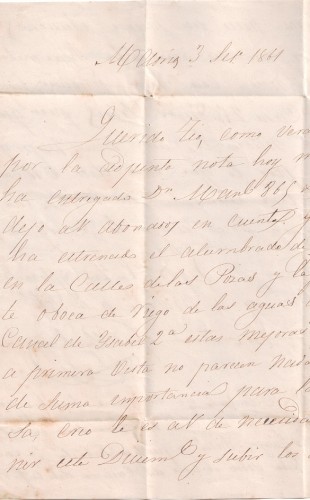 3 Set. 1861
Querido Tio, como vera
por la adjunta nota hoy
ha entregado Dn. Manl. 865
dejo al abonados en cuenta y
ha estrenado el alumbrado de
en la Calle de las Pozas y la
te oboca de riego de las aguas
Canal de Ysabel 2ª estas mejoras
a primera vista no parecen nada
de suma importancia para
sa, creo le es al de
nir este Diciem. y subir los